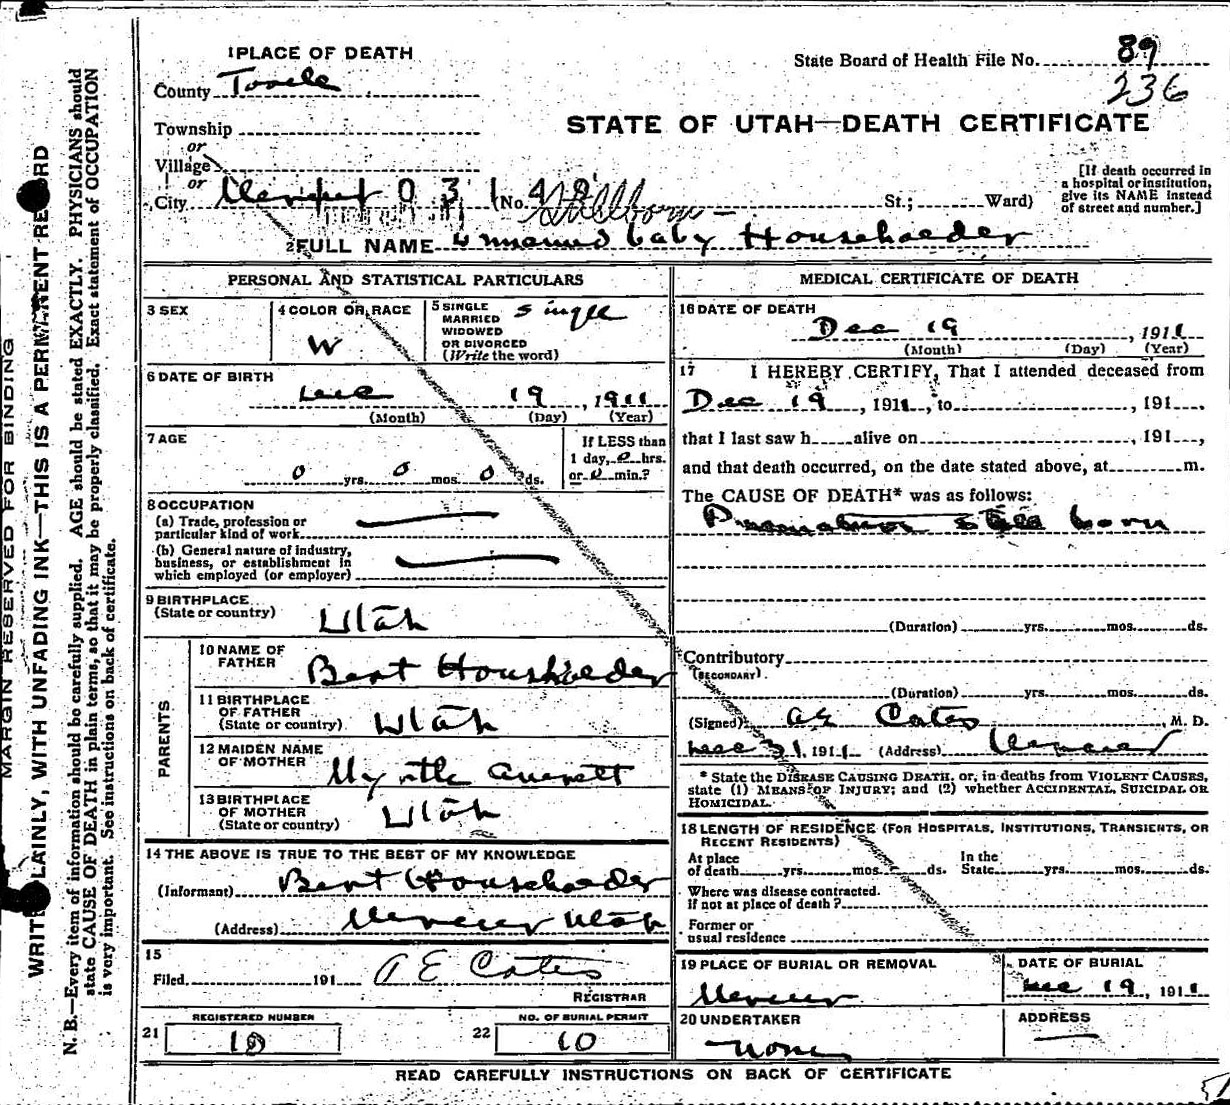 1 PLACE OF DEATH
County Tooele
Township
or
Village
or
City Mercur 0 3 1 4 8 (No. Stillborn — St.; Ward)
State Board of Health File No. 89
236
STATE OF UTAH—DEATH CERTIFICATE
[If death occurred in
a hospital or institution,
give its NAME instead
of street and number.]
2 FULL NAME Unnamed baby Householder
PERSONAL AND STATISTICAL PARTICULARS
3 SEX
4 COLOR OR RACE
W
5 SINGLE
MARRIED
WIDOWED
OR DIVORCED
(Write the word)
single
6 DATE OF BIRTH
Dec 19, 1911
(Month) (Day) (Year)
7 AGE
0 yrs. 0 mos. 0 ds.
If LESS than
1 day, 0 hrs.
or 0 min.?
8 OCCUPATION
(a) Trade, profession or
particular kind of work
(b) General nature of industry,
business, or establishment in
which employed (or employer)
9 BIRTHPLACE
(State or country)
Utah
PARENTS
10 NAME OF
FATHER
Bert Householder
11 BIRTHPLACE
OF FATHER
(State or country)
Utah
12 MAIDEN NAME
OF MOTHER
Myrtle Averett
13 BIRTHPLACE
OF MOTHER
(State or country)
Utah
14 THE ABOVE IS TRUE TO THE BEST OF MY KNOWLEDGE
(Informant) Bert Householder
(Address) Mercur Utah
15
Filed 191 A E Cates
REGISTRAR
21 REGISTERED NUMBER
10
22 NO. OF BURIAL PERMIT
10
MEDICAL CERTIFICATE OF DEATH
16 DATE OF DEATH
Dec 19, 1911
(Month) (Day) (Year)
17 I HEREBY CERTIFY, That I attended deceased from
Dec 19, 1911, to , 191 ,
that I last saw h alive on , 191 ,
and that death occurred, on the date stated above, at m.
The CAUSE OF DEATH* was as follows:
Premature still born
(Duration) yrs. mos. ds.
Contributory
(SECONDARY)
(Duration) yrs. mos. ds.
(Signed) A E Cates, M. D.
Dec 31, 1911 (Address) Mercur
* State the DISEASE CAUSING DEATH, or, in deaths from VIOLENT CAUSES,
state (1) MEANS OF INJURY; and (2) whether ACCIDENTAL, SUICIDAL OR
HOMICIDAL.
18 LENGTH OF RESIDENCE (FOR HOSPITALS, INSTITUTIONS, TRANSIENTS, OR
RECENT RESIDENTS)
At place
of death yrs. mos. ds.
In the
State yrs. mos. ds.
Where was disease contracted.
If not at place of death?
Former or
usual residence
19 PLACE OF BURIAL OR REMOVAL
Mercur
DATE OF BURIAL
Dec 19, 1911
20 UNDERTAKER
None
ADDRESS
READ CAREFULLY INSTRUCTIONS ON BACK OF CERTIFICATE
MARGIN RESERVED FOR BINDING
WRITE PLAINLY, WITH UNFADING INK—THIS IS A PERMANENT RECORD
N. B.—Every item of information should be carefully supplied. AGE should be stated EXACTLY. PHYSICIANS should
state CAUSE OF DEATH in plain terms, so that it may be properly classified. Exact statement of OCCUPATION
is very important. See instructions on back of certificate.